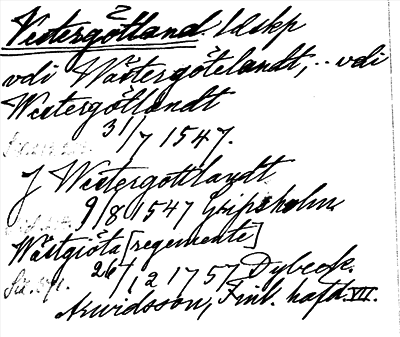 Vestergötland. Ldskp
vdi Wästergötelandt, .. vdi
Westergötlandt
31/7 1547.
J Westergottlandt
9/8 1547 Gripsholm.
Wästgiöta [regemente]
26/12 1757 Dybeck.
Arwidsson, Finl. hafd. VII.